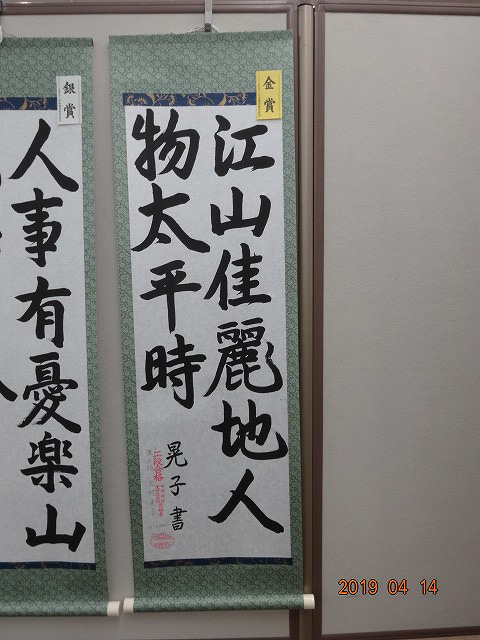 金賞
江山佳麗地人
物太平時
晃子書
二段合格
銀賞
人事有憂楽山
2019 04 14